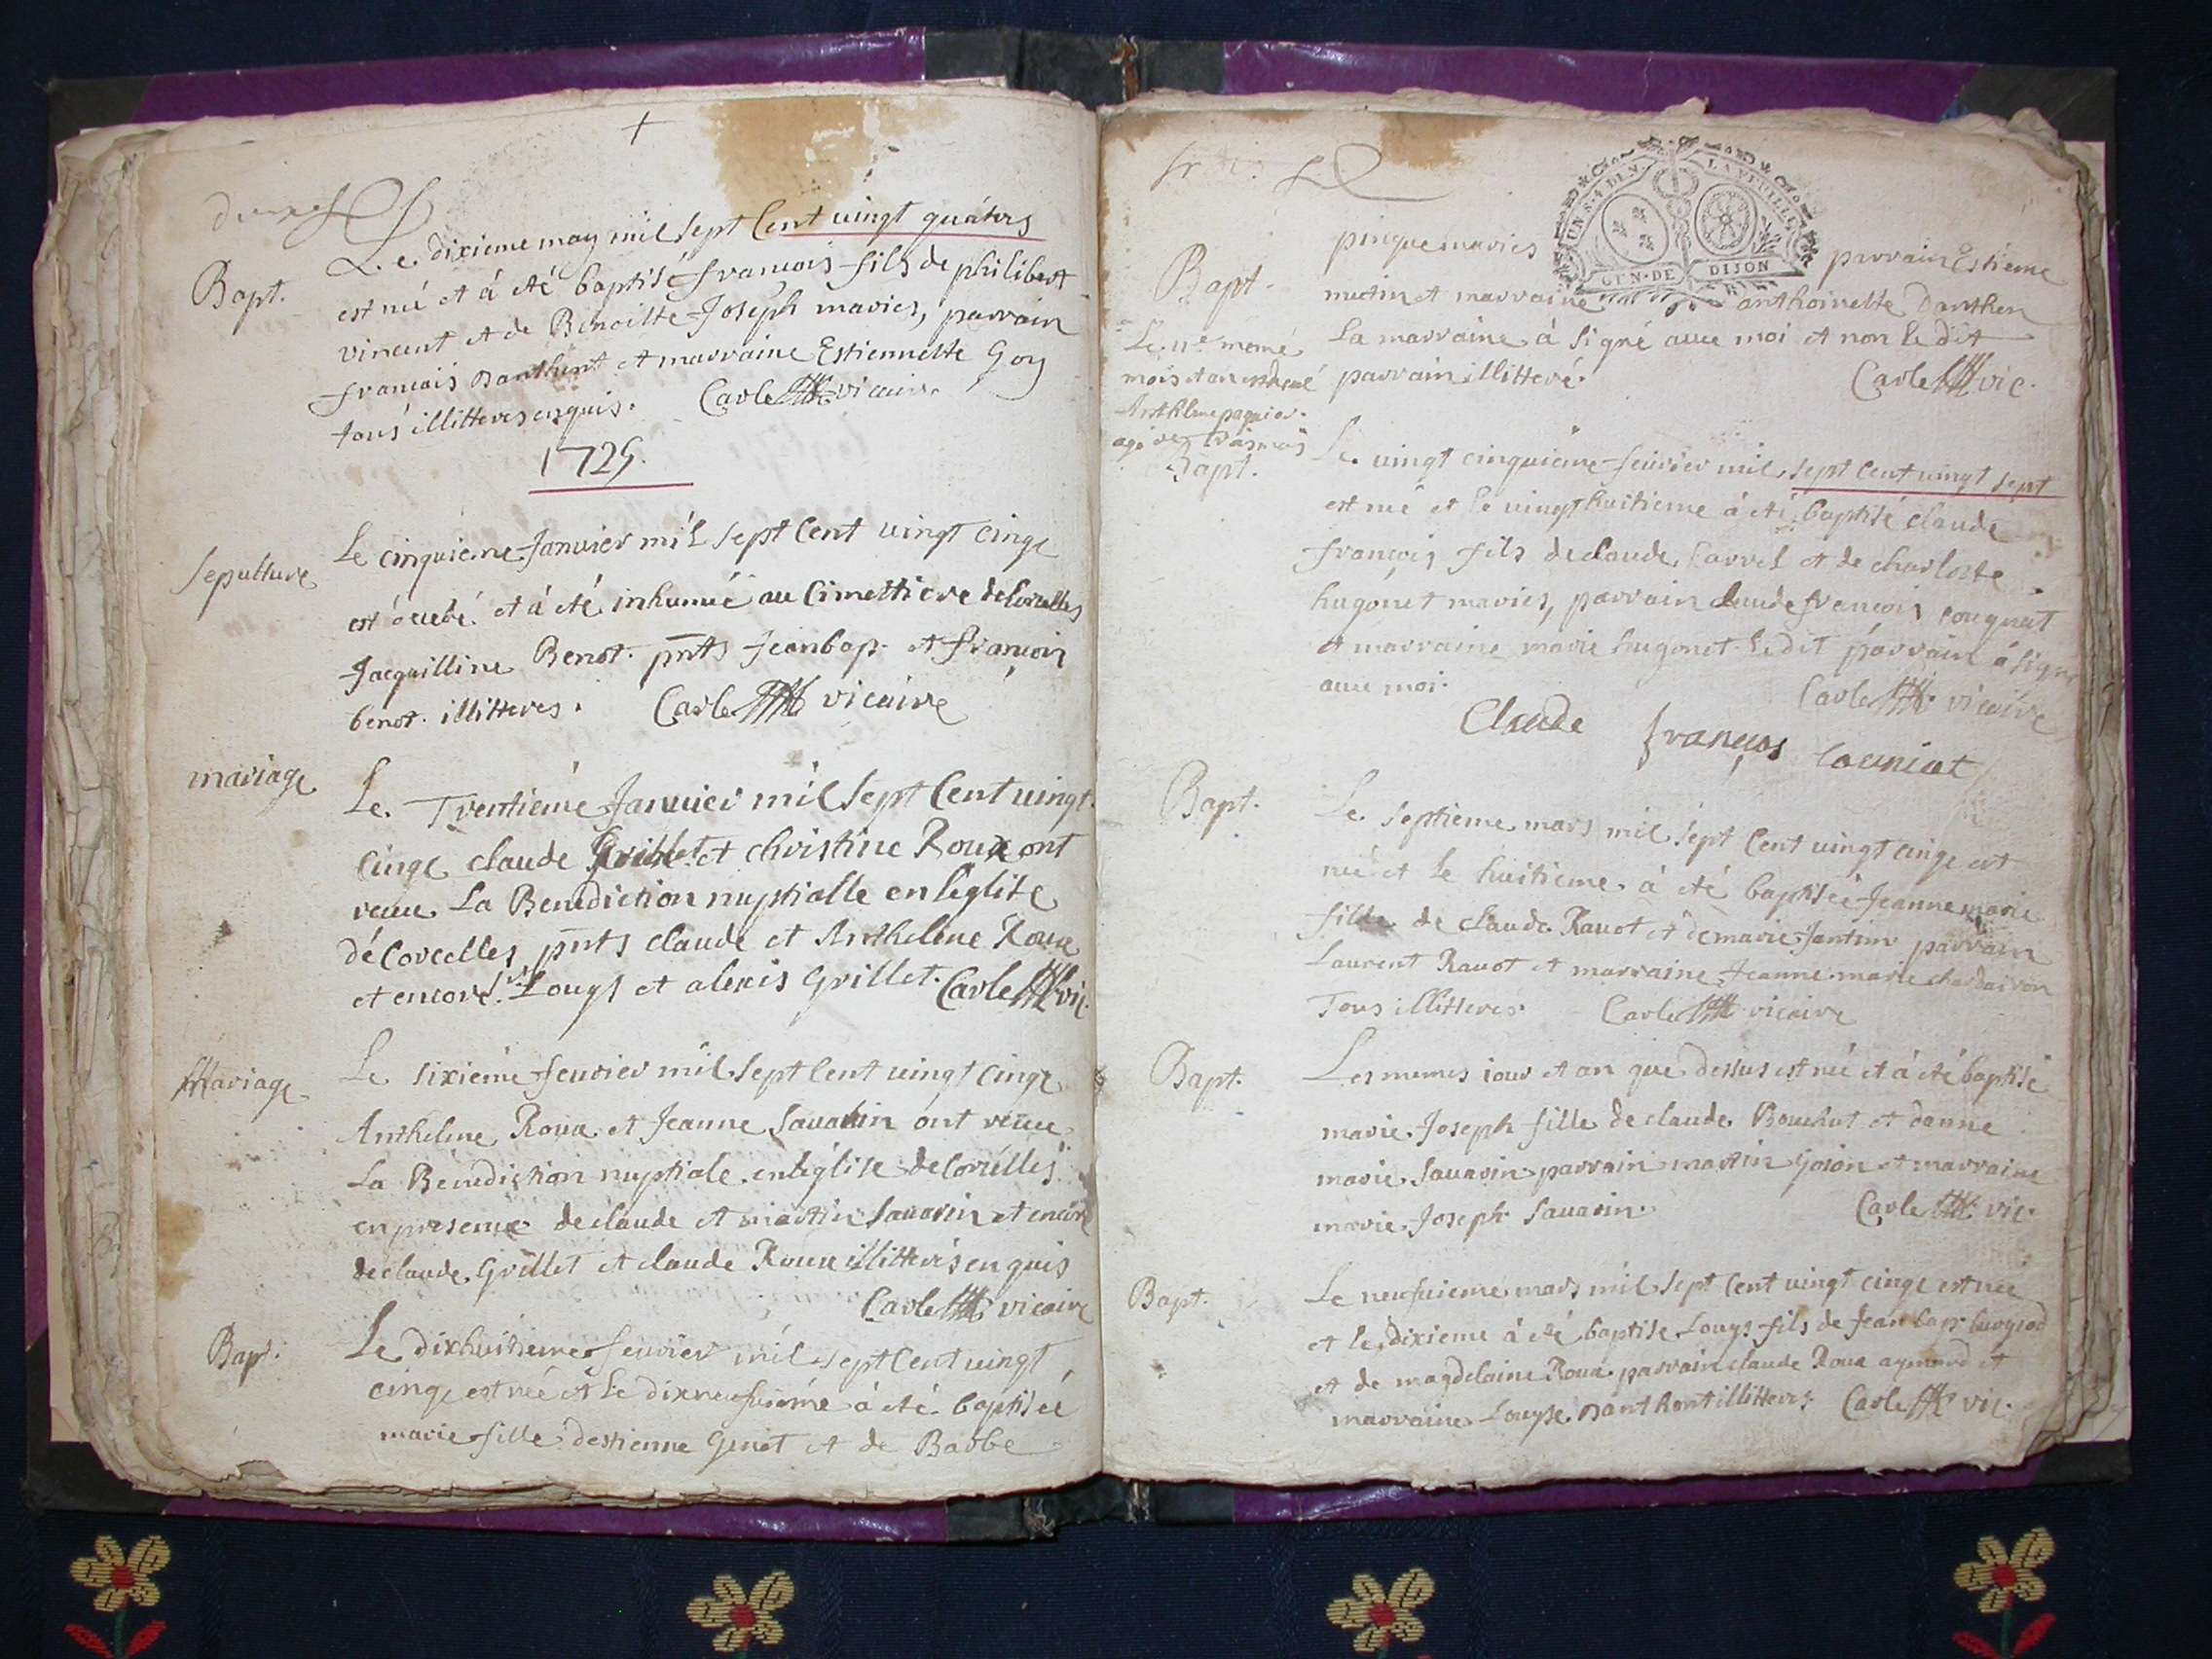 Bapt.
Le dixieme may mil sept Cent uingt quáters
est né et á eté baptisé françois fils de philibert
vincent et de Benoitte Joseph maries, parrain
francais Danthent et marraine Estiennette Goy
tous illitteres enquis. Carle vicaire.
1725.
Sepulture
Le cinquieme Januier mil sept Cent uingt cinqe
est decedé et á eté inhumée au Cimettiere de Corcelles
Jacquilline Benot. pnts Jeanbap. et françois
benot. illitteres. Carle vicaire
mariage
Le Trentieme Januier mil sept Cent uingt
cinqe claude Grillet et christine Roux ont
receue La Benediction nuptialle en léglise
dé Corcelles pnts claude et Anthelme Roux
et encore Sr. Louys et alexis Grillet. Carle vic.
Mariage
Le sixieme feurier mil sept Cent uingt cinqe
Anthelme Roux et Jeanne Sauarin ónt receue
La Benediction nuptiale en léglise de Corcelles
en presence de claude et martin Sauarin et encore
de claude Grillet et claude Roux illitterés enquis
Carle vicaire
Bapt.
Le dixhuitieme feurier mil sept Cent uingt
cinqe est née et le dixneufuieme á eté baptisée
marie fille destienne Genet et de Barbe
UN S. 4 DEN. LA FEUILLE
GEN. DE DIJON
Bapt.
pinque maries parrain Estienne
metin et marraine anthoinette Danthen
La marraine á signé auec moi et non le dit
parrain illitteré. Carle vic.
Le 11e memé
mois et an est decedé
Anthelme paquier.
agé de trois mois
Bapt.
Le uingt cinquieme feurier mil sept Cent uingt sept
est né et le uingt huitieme á eté baptisé claude
françois fils de claude Carrel et de charlotte
hugonet maries, parrain claude francois cougnat
et marraine marie hugonet. Le dit parrain á signé
auec moi. Carle vicaire
Claude françois Couniat
Bapt.
Le septieme mars mil sept Cent uingt cinqe est
né et le huitieme á eté baptisée Jeanne marie
fille de claude Rauot et de marie Jantin parrain
Laurent Rauot et marraine Jeanne marie chardairon
Tous illitteres. Carle vicaire
Bapt.
Les memes iour et an que dessus est né et á eté baptisé
marie Joseph fille de claude Bouchut et danne
marie Sauarin parrain martin Goion et marraine
marie Joseph Sauarin. Carle vic.
Bapt.
Le neufuieme mars mil sept Cent uingt cinqe est née
et le dixieme á eté baptise Louys fils de Jean bap. burgiod
et de magdelaine Roux. parrain claude Roux aymard et
marraine Louyse Danthont illitteres Carle vic.